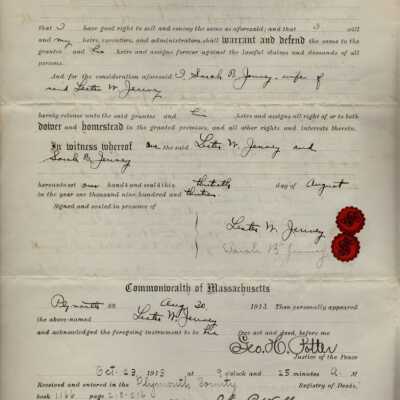 that I have good right to sell and convey the same as aforesaid; and that I will
and my heirs, executors, and administrators, shall warrant and defend the same to the
grantee and his heirs and assigns forever against the lawful claims and demands of all
persons.
And for the consideration aforesaid I, Sarah B. Jenney, wife of
said Lester W. Jenney
hereby release unto the said grantee and his heirs and assigns all right of or to both
dower and homestead in the granted premises, and all other rights and interests therein.
In witness whereof we the said Lester W. Jenney and
Sarah B. Jenney
hereunto set our hands and seals this thirtieth day of August
in the year one thousand nine hundred and thirteen.
Signed and sealed in presence of
Lester W. Jenney
Sarah B. Jenney
Commonwealth of Massachusetts
Plymouth ss. Aug 30 1913. Then personally appeared
the above-named Lester W. Jenney
and acknowledged the foregoing instrument to be his free act and deed, before me
Geo. H. Potter
Justice of the Peace
Oct. 23, 1913 at 9 o'clock and 25 minutes A. M
Received and entered in the Plymouth County Registry of Deeds,
book 1166 page